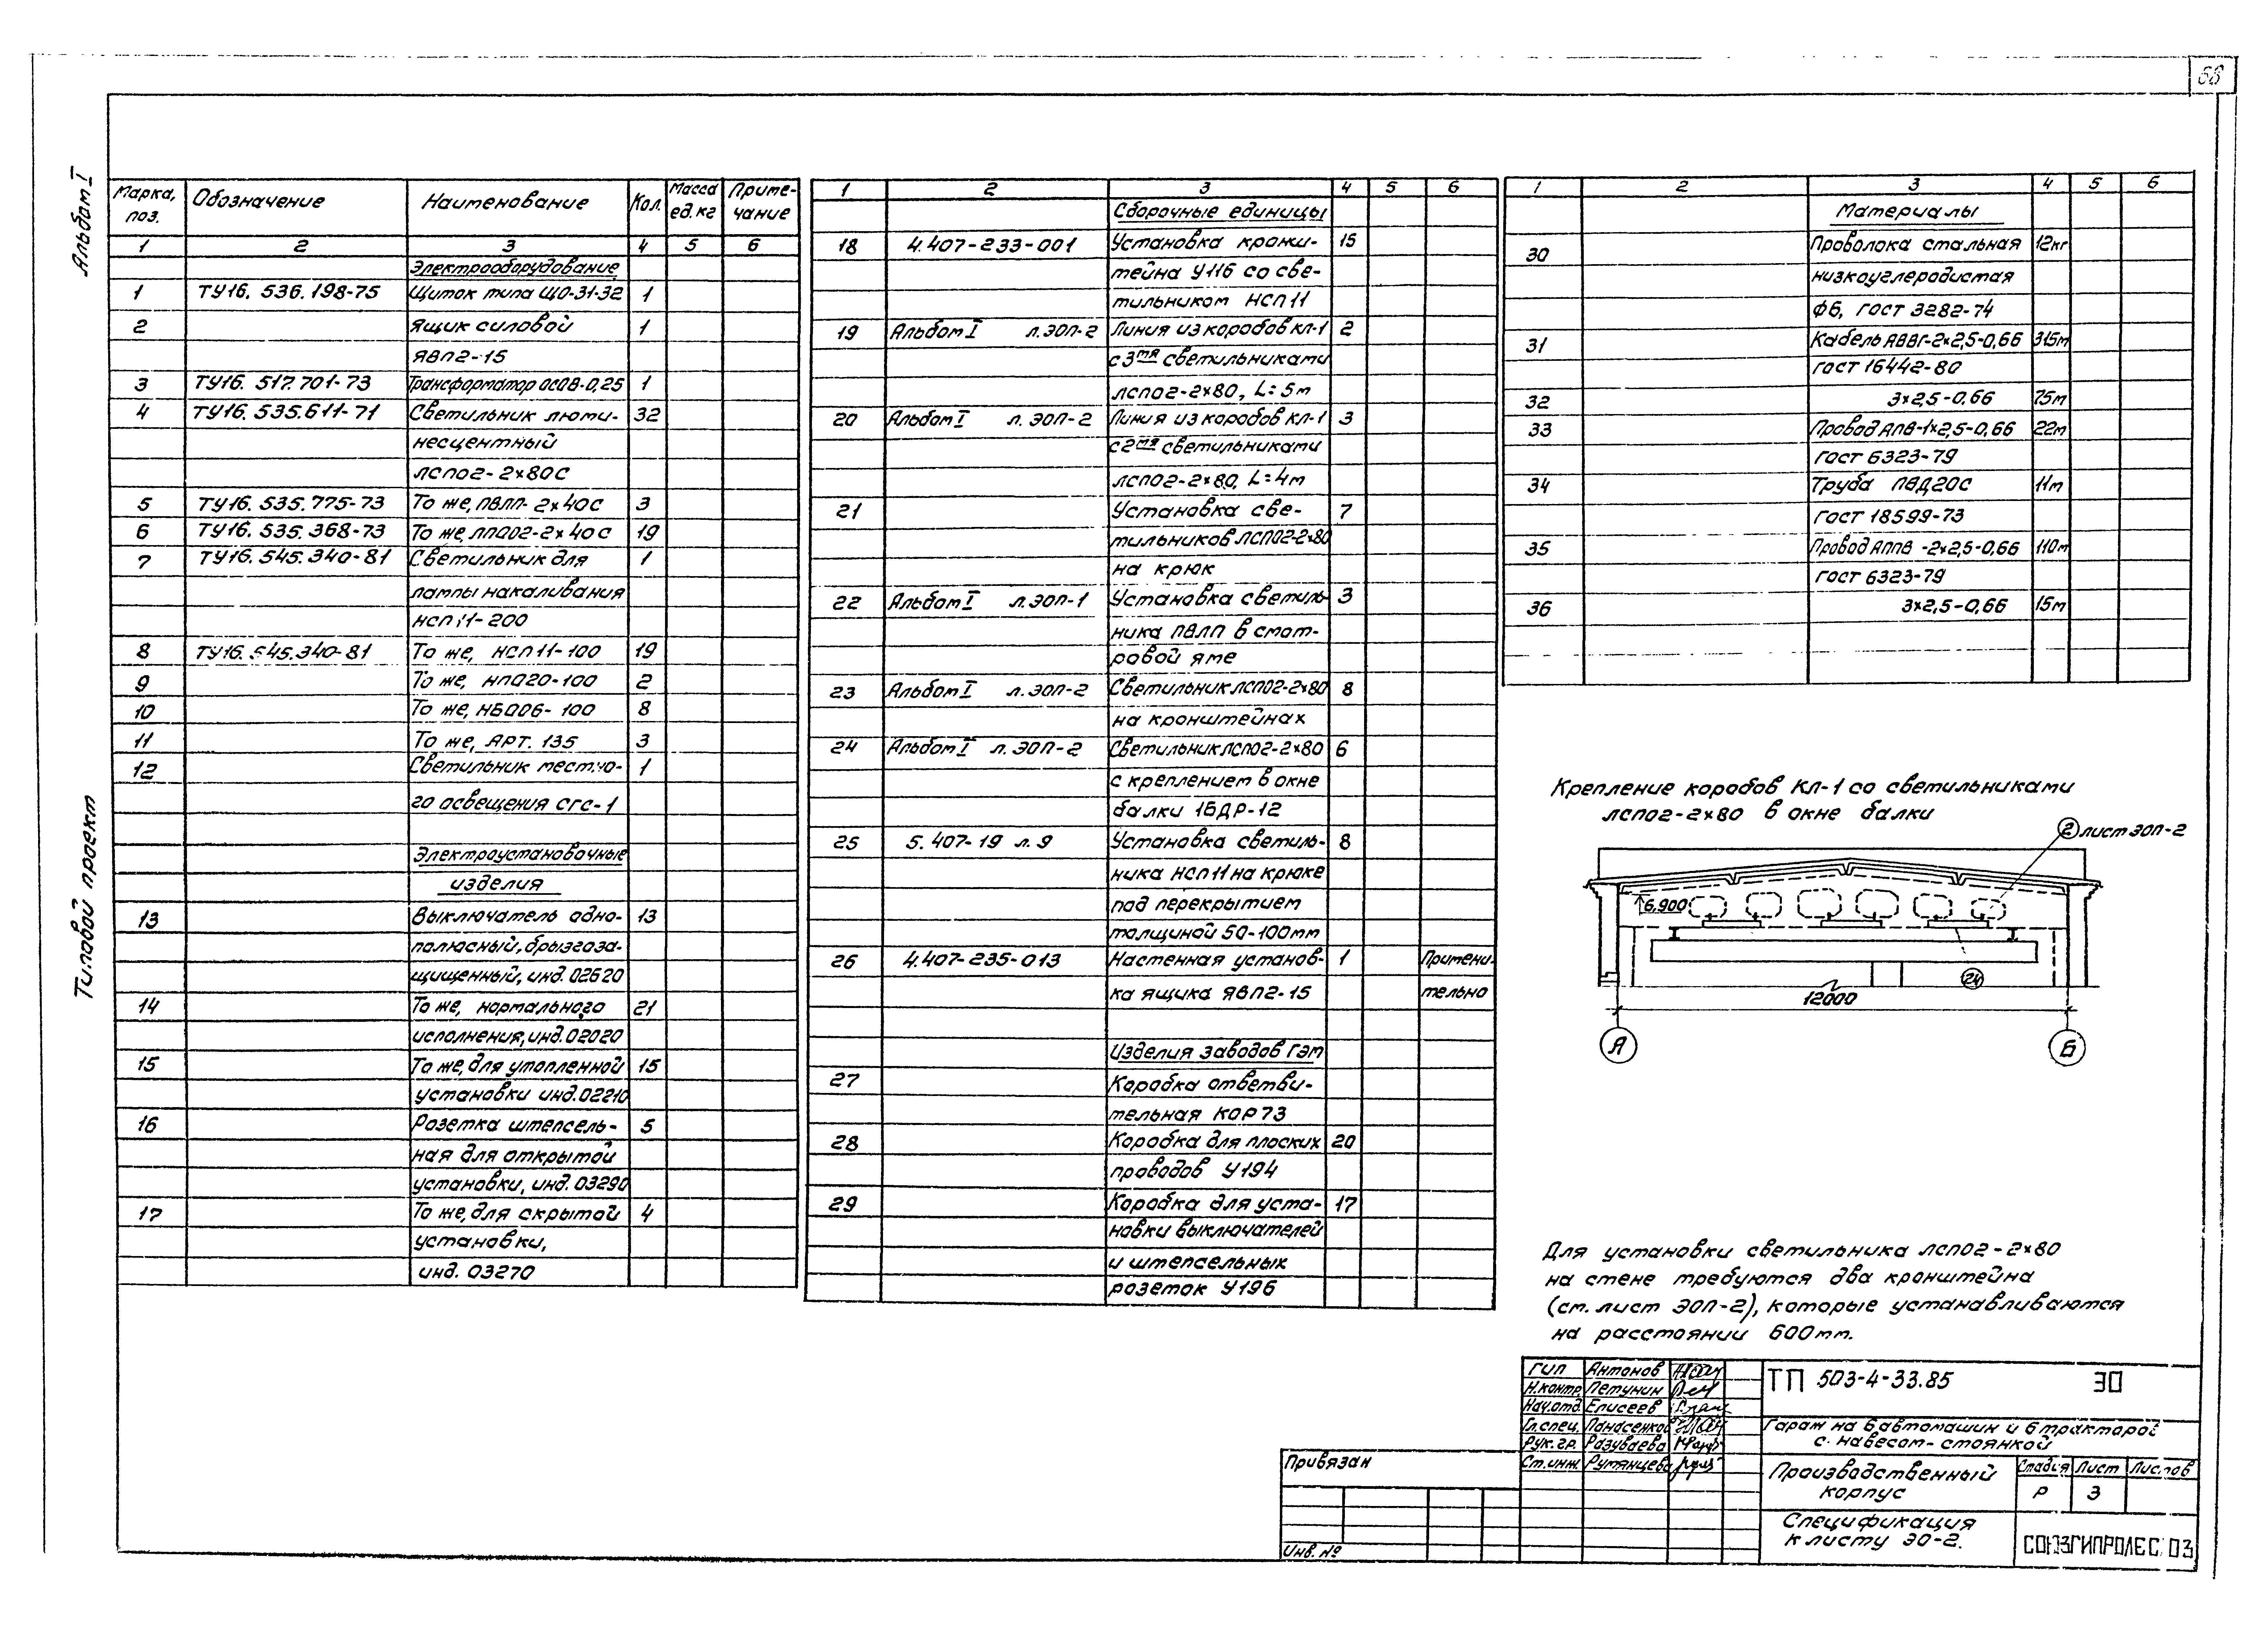 68
Альбом I
Типовой проект
Марка, поз. Обозначение Наименование Кол. Масса ед.кг Приме-чание
1 2 3 4 5 6
Электрооборудование
1 ТУ16.536.198-75 Щиток типа ЩО-31-32 1
2 Ящик силовой 1
ЯВП2-15
3 ТУ16.517.701-73 Трансформатор ОСОВ-0,25 1
4 ТУ16.535.611-71 Светильник люми- 32
несцентный
ЛСП02-2×80С
5 ТУ16.535.775-73 То же, ПВЛП-2×40С 3
6 ТУ16.535.368-73 То же, ЛПО02-2×40С 19
7 ТУ16.545.340-81 Светильник для 1
лампы накаливания
НСП11-200
8 ТУ16.545.340-81 То же, НСП11-100 19
9 То же, НПО20-100 2
10 То же, НБО06-100 8
11 То же, АРТ.135 3
12 Светильник местно- 1
го освещения СГС-1
Электроустановочные
изделия
13 Выключатель одно- 13
полюсный, брызгоза-
щищенный, инд.02620
14 То же, нормального 21
исполнения, инд.02020
15 То же, для утопленной 15
установки инд.02210
16 Розетка штепсель- 5
ная для открытой
установки, инд.03290
17 То же, для скрытой 4
установки,
инд. 03270
1 2 3 4 5 6
Сборочные единицы
18 4.407-233-001 Установка кронш- 15
тейна У116 со све-
тильником НСП11
19 Альбом I л.ЭОП-2 Линия из коробов КЛ-1 2
с 3мя светильниками
ЛСП02-2×80, L=5м
20 Альбом I л.ЭОП-2 Линия из коробов КЛ-1 3
с 2мя светильниками
ЛСП02-2×80, L=4м
21 Установка све- 7
тильников ЛСП02-2×80
на крюк
22 Альбом I л.ЭОП-1 Установка светиль- 3
ника ПВЛП в смот-
ровой яме
23 Альбом I л.ЭОП-2 Светильник ЛСП02-2×80 8
на кронштейнах
24 Альбом I л.ЭОП-2 Светильник ЛСП02-2×80 6
с креплением в окне
балки 1БДР-12
25 5.407-19 л.9 Установка светиль- 8
ника НСП11 на крюке
под перекрытием
толщиной 50-100мм
26 4.407-235-013 Настенная установ- 1 Примени-
ка ящика ЯВП2-15 тельно
Изделия заводов ГЭМ
27 Коробка ответви-
тельная КОР73
28 Коробка для плоских 20
проводов У194
29 Коробка для уста- 17
новки выключателей
и штепсельных
розеток У196
1 2 3 4 5 6
Материалы
30 Проволока стальная 12кг
низкоуглеродистая
Ф6, ГОСТ 3282-74
31 Кабель АВВГ-2×2,5-0,66 315м
ГОСТ 16442-80
32 3×2,5-0,66 75м
33 Провод АПВ-1×2,5-0,66 22м
ГОСТ 6323-79
34 Труба ПВД20С 11м
ГОСТ 18599-73
35 Провод АППВ-2×2,5-0,66 110м
ГОСТ 6323-79
36 3×2,5-0,66 15м
Крепление коробов КЛ-1 со светильниками
ЛСП02-2×80 в окне балки
2 лист ЭОП-2
6,900
24
12000
А Б
Для установки светильника ЛСП02-2×80
на стене требуются два кронштейна
(см. лист ЭОП-2), которые устанавливаются
на расстоянии 600мм.
ГИП Антонов
Н.контр. Петунин
Нач.отд. Елисеев
Гл.спец. Панасенков
Рук.гр. Разуваева
Ст.инж. Румянцева
ТП 503-4-33.85 ЭО
Гараж на 6 автомашин и 6 тракторов
с навесом-стоянкой
Производственный
корпус
Стадия Лист Листов
Р 3
Спецификация
к листу ЭО-2.
СОЮЗГИПРОЛЕСХОЗ
Привязан
Инв. №